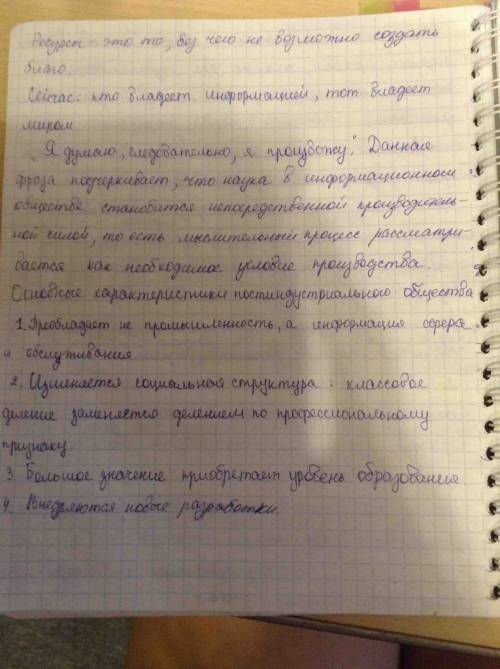 Ресурсы - это то, без чего не возможно создать
благо.
Сейчас: кто владеет информацией, тот владеет
миром
„Я думаю, следовательно, я произвожу". Данная
фраза подчеркивает, что наука в информационном
обществе становится непосредственной производитель-
ной силой, то есть мыслительный процесс рассматри-
вается как необходимое условие производства.
Основные характеристики постиндустриального общества
1. Преобладает не промышленность, а информация сфера
и обслуживания
2. Изменяется социальная структура: классовое
деление заменяется делением по профессиональному
признаку.
3. Большое значение приобретает уровень образования
4. Внедряются новые разработки.